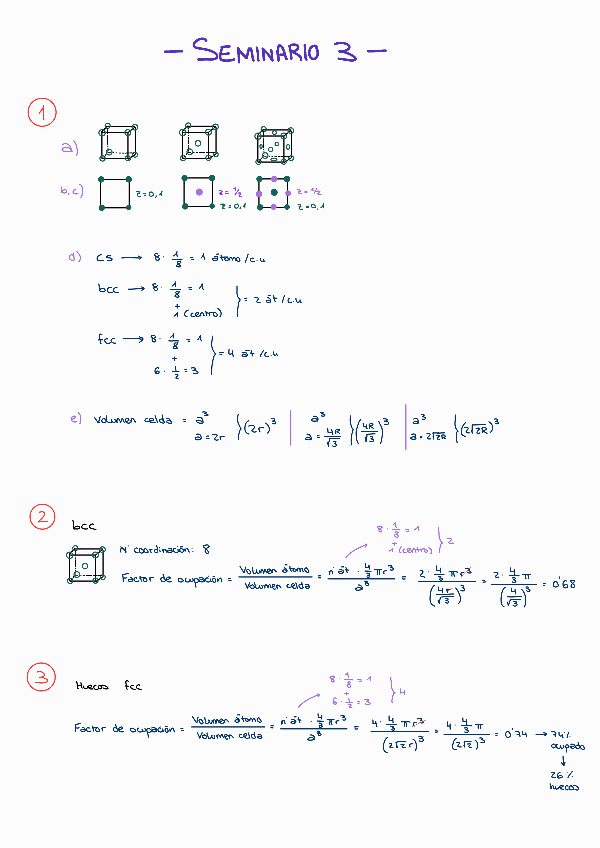 — SEMINARIO 3 —
1
a)
b,c) z=0,1 z=1/2 z=0,1 z=1/2 z=0,1
d) cs → 8 · 1/8 = 1 átomo/c.u
bcc → 8 · 1/8 = 1 + 1 (centro) } = 2 át/c.u
fcc → 8 · 1/8 = 1 + 6 · 1/2 = 3 } = 4 át/c.u
e) Volumen celda = a³ a = 2r } (2r)³ | a³ a = 4R/√3 } (4R/√3)³ | a³ a = 2√2R } (2√2R)³
2 bcc
8 · 1/8 = 1 + 1 (centro) } 2
Nº coordinación: 8
Factor de ocupación = Volumen átomo / Volumen celda = nº át · 4/3 πr³ / a³ = 2 · 4/3 πr³ / (4r/√3)³ = 2 · 4/3 π / (4/√3)³ = 0'68
3 Huecos fcc
8 · 1/8 = 1 + 6 · 1/2 = 3 } 4
Factor de ocupación = Volumen átomo / Volumen celda = nº át · 4/3 πr³ / a³ = 4 · 4/3 πr³ / (2√2 r)³ = 4 · 4/3 π / (2√2)³ = 0'74 → 74% ocupado
↓
26 %
huecos